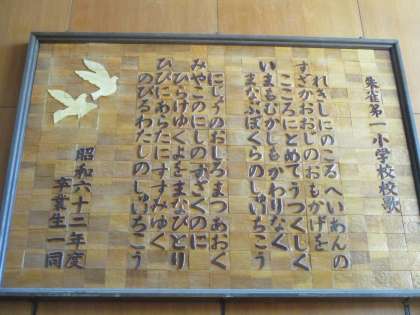 朱雀第一小学校校歌
れきしにのこるへいあんの
すざかおおじのおもかげを
こころにとめてうつくしく
いまもむかしもかわりなく
まなぶぼくらのしゅいちこう
にじょうのおしろまつあおく
みやこのにしのすざくのに
ひらけゆくよをまなびどり
ひびにあらたにすすみゆく
のびるわたしのしゅいちこう
昭和六十二年度
卒業生一同